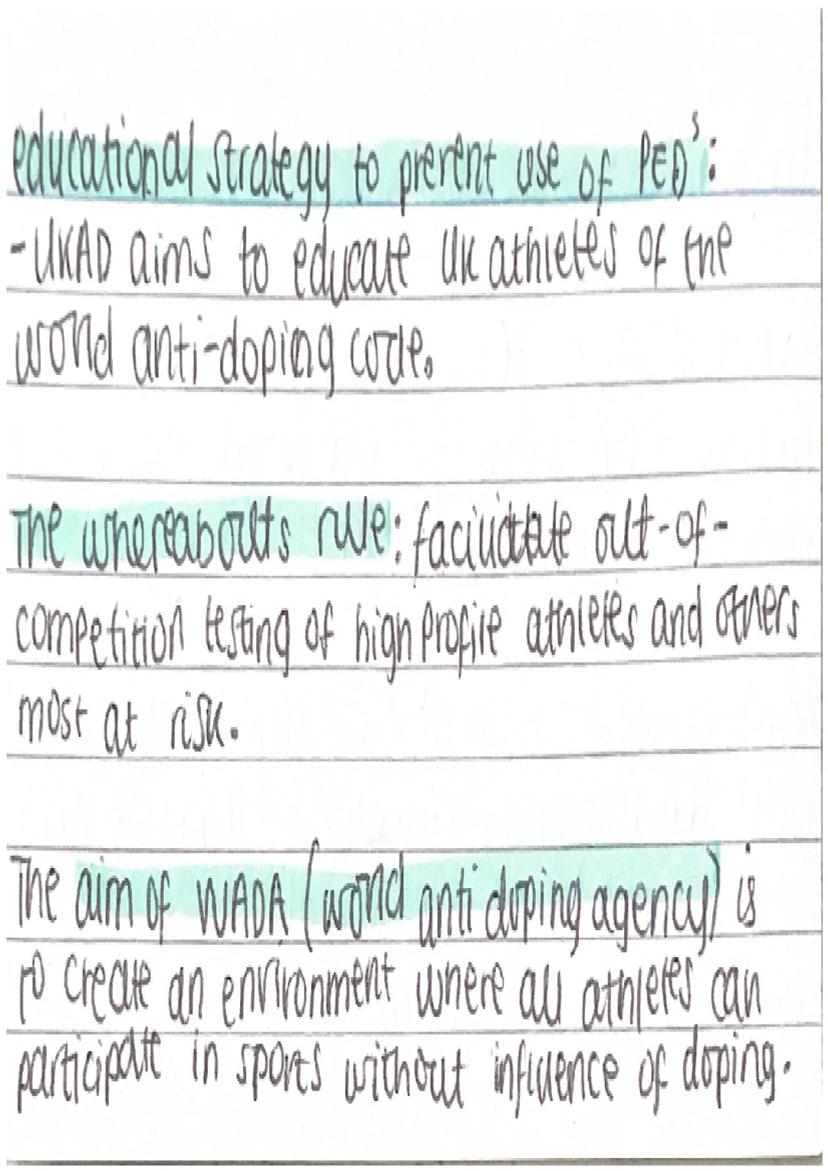 educational strategy to prevent use of PED's:
-UKAD aims to educate UK athletes of the
world anti-doping code.
The whereabouts rule: facilitate out-of-
competition testing of high profile athletes and others
most at risk.
The aim of WADA (world anti doping agency) is
to create an environment where all athletes can
participate in sports without influence of doping.